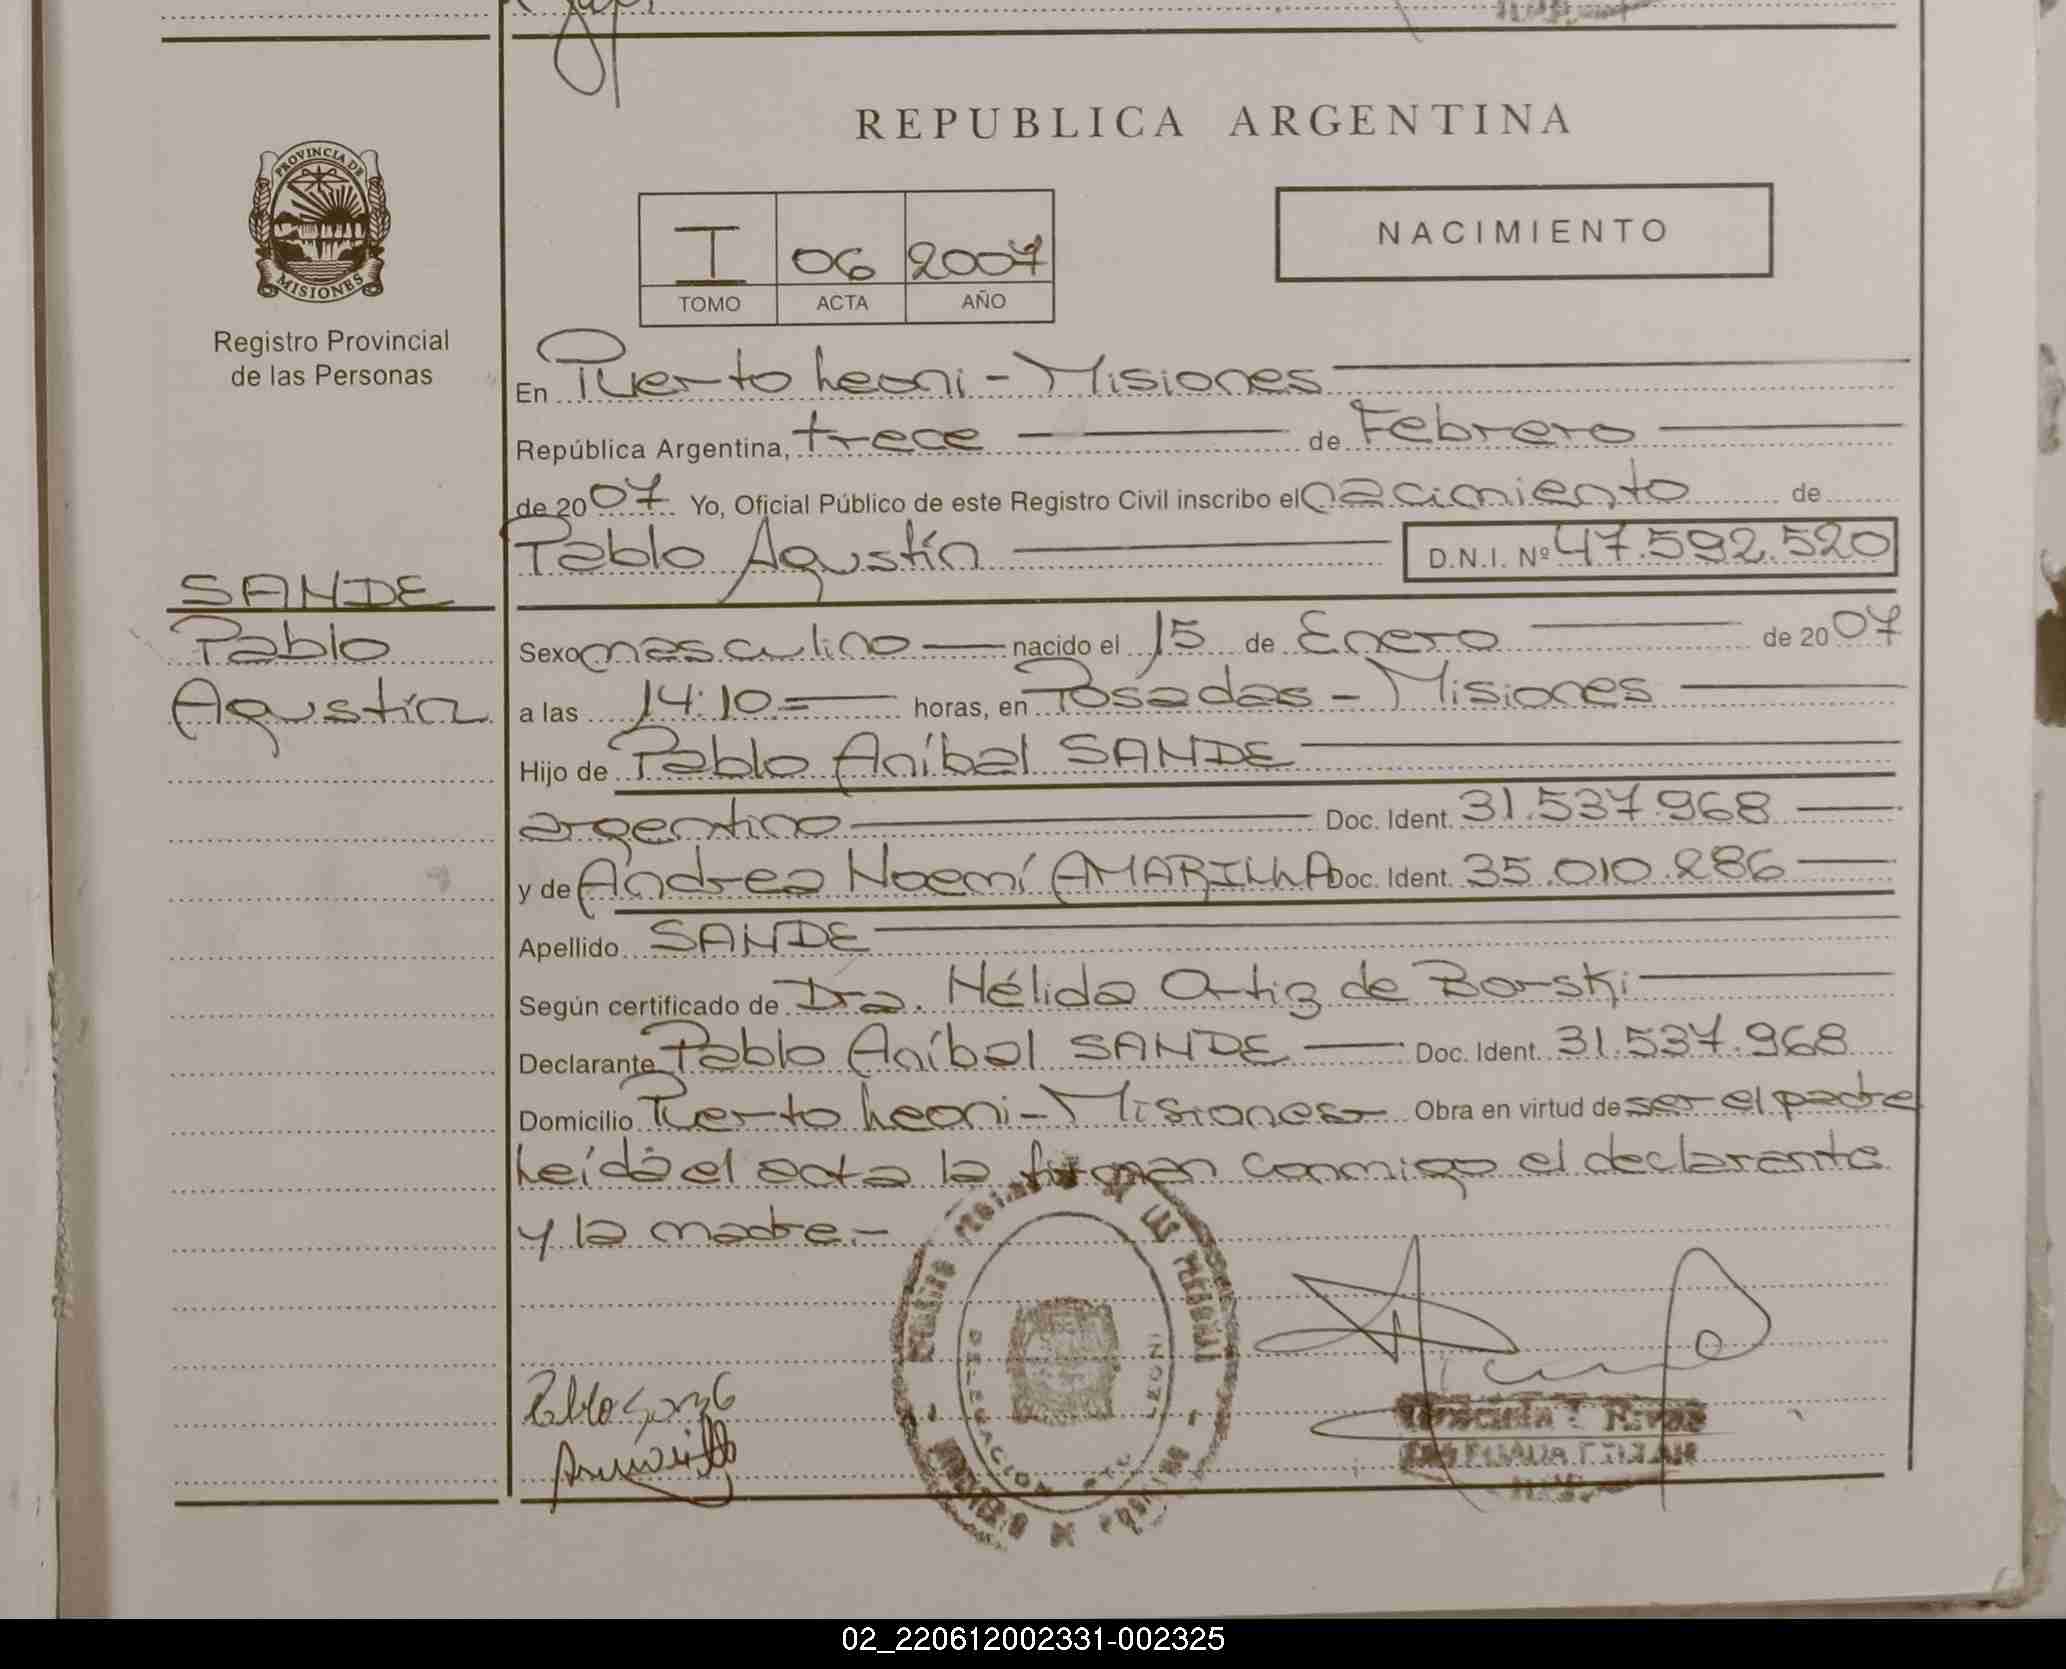 REPUBLICA ARGENTINA
PROVINCIA DE
MISIONES
Registro Provincial
de las Personas
I 06 2007
TOMO ACTA AÑO
NACIMIENTO
En Puerto Leoni - Misiones
República Argentina, trece de Febrero
de 2007 Yo, Oficial Público de este Registro Civil inscribo el nacimiento de
Pablo Agustín D.N.I. Nº 47.592.520
SANDE
Pablo
Agustín
Sexo masculino nacido el 15 de Enero de 2007
a las 14:10= horas, en Posadas - Misiones
Hijo de Pablo Aníbal SANDE
argentino Doc. Ident. 31.537.968
y de Andrea Noemí AMARILLA Doc. Ident. 35.010.286
Apellido SANDE
Según certificado de Dra. Nélida Ortiz de Borski
Declarante Pablo Aníbal SANDE Doc. Ident. 31.537.968
Domicilio Puerto Leoni - Misiones Obra en virtud de ser el padre
Leída el acta la firman conmigo el declarante
y la madre.-
DELEGACION PTO LEONI
02_220612002331-002325